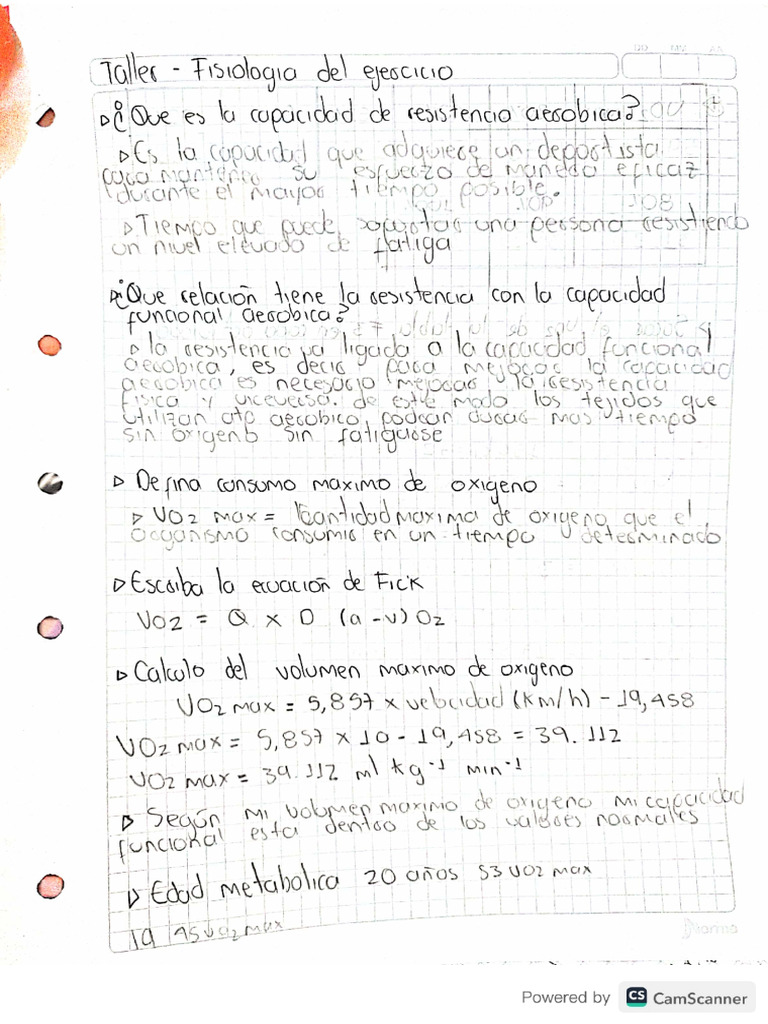 Taller - Fisiologia del ejercicio
¿Que es la capacidad de resistencia aerobica?
Es la capacidad que adquiere un deportista
para mantener su esfuerzo de manera eficaz
durante el mayor tiempo posible.
Tiempo que puede soportar una persona resistiendo
un nivel elevado de fatiga
¿Que relación tiene la resistencia con la capacidad
funcional aerobica?
la resistencia va ligada a la capacidad funcional
aerobica, es decir para mejorar la capacidad
aerobica es necesario mejorar la resistencia
fisica y viceversa. de este modo los tejidos que
utilizan atp aerobico, podran durar mas tiempo
sin origenb sin fatigarse
Defina consumo maximo de oxigeno
VO2 max = cantidad maxima de oxigeno que el
organismo consumio en un tiempo determinado
Escriba la ecuación de Fick
VO2 = Q x D (a-v) O2
Calculo del volumen maximo de oxigeno
VO2 max = 5,857 x velocidad (km/h) - 19,458
VO2 max = 5,857 x 10 - 19,458 = 39.112
VO2 max = 39.112 ml kg-1 min-1
Según mi volumen maximo de oxigeno mi capacidad
funcional esta dentro de los valores normales
Edad metabolica 20 años 53 VO2 max
19 45 VO2 max
Norma
Powered by CS CamScanner